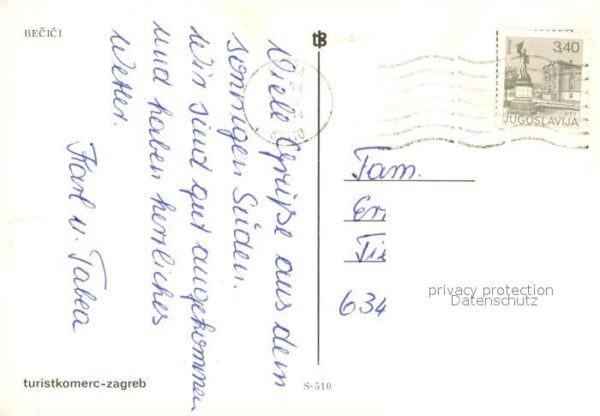 BEČIĆI
Viele Grüße aus dem
sonnigen Süden.
Wir sind gut angekommen
und haben herrliches
Wetter.
Karl u. Tabea
3,40
JUGOSLAVIJA
Fam.
634
privacy protection
Datenschutz
turistkomerc-zagreb
S-510